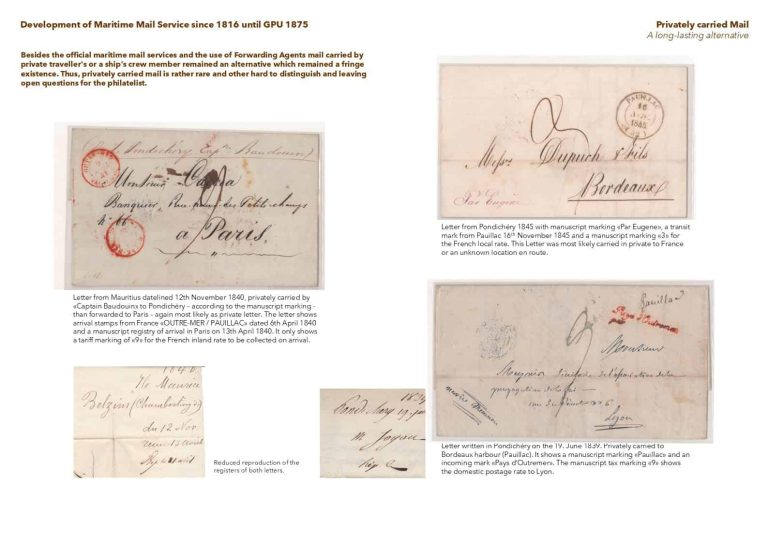 Development of Maritime Mail Service since 1816 until GPU 1875
Privately carried Mail
A long-lasting alternative
Besides the official maritime mail services and the use of Forwarding Agents mail carried by
private traveller's or a ship's crew member remained an alternative which remained a fringe
existence. Thus, privately carried mail is rather rare and other hard to distinguish and leaving
open questions for the philatelist.
p. Pondichéry Cap.ne Baudouin
Monsieur
Banquier, Rue des Petits champs
N° 66
à Paris.
Letter from Mauritius datelined 12th November 1840, privately carried by
«Captain Baudouin» to Pondichéry – according to the manuscript marking –
than forwarded to Paris – again most likely as private letter. The letter shows
arrival stamps from France «OUTRE-MER / PAUILLAC» dated 6th April 1840
and a manuscript registry of arrival in Paris on 13th April 1840. It only shows
a tariff marking of «9» for the French inland rate to be collected on arrival.
1840
Ile Maurice
Belzim
du 12 Nov.
Reduced reproduction of the
registers of both letters.
1839
Pondichery 19 juin
PAUILLAC
16
1845
Messrs Dupuch & fils
Bordeaux
Par Eugene
Letter from Pondichéry 1845 with manuscript marking «Par Eugene», a transit
mark from Pauillac 16th November 1845 and a manuscript marking «3» for
the French local rate. This Letter was most likely carried in private to France
or an unknown location en route.
Pauillac
Pays d'Outremer
Monsieur
propagation de la foi
Lyon
Letter written in Pondichéry on the 19. June 1839. Privately carried to
Bordeaux harbour (Pauillac). It shows a manuscript marking «Pauillac» and an
incoming mark «Pays d'Outremer». The manuscript tax marking «9» shows
the domestic postage rate to Lyon.